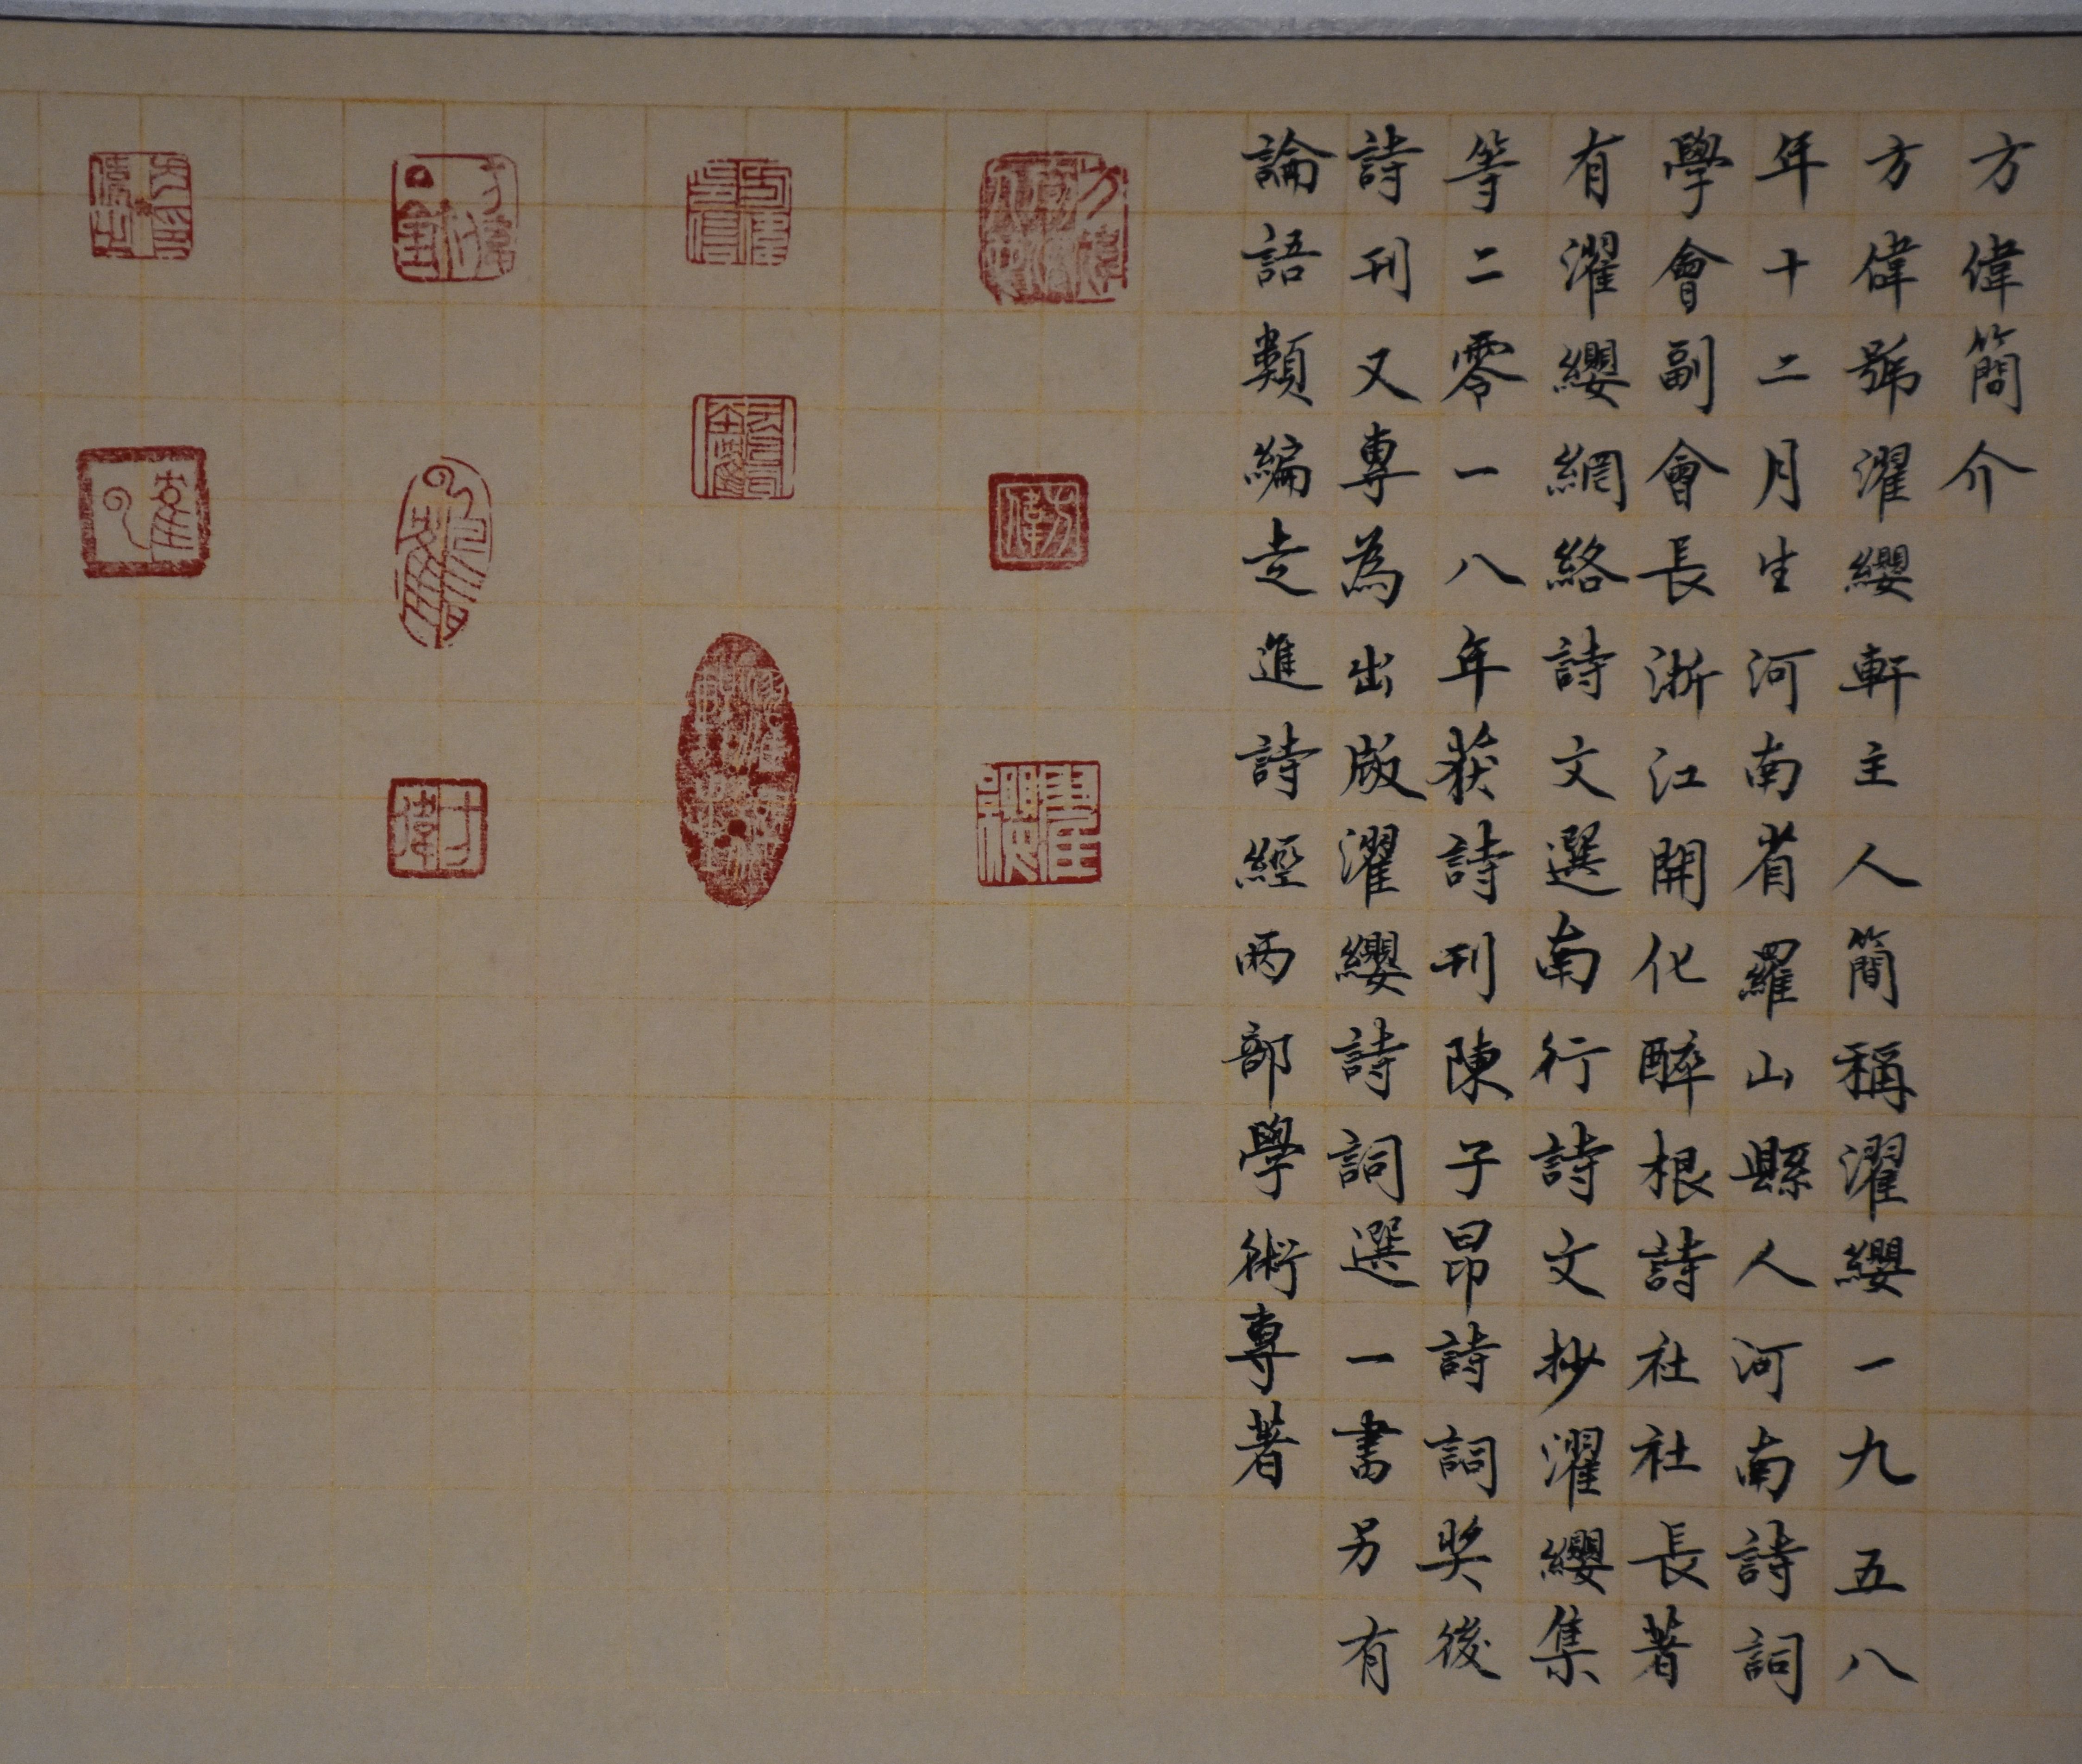 方偉簡介
方偉號濯纓軒主人簡稱濯纓一九五八
年十二月生河南省羅山縣人河南詩詞
學會副會長浙江開化醉根詩社社長著
有濯纓網絡詩文選南行詩文抄濯纓集
等二零一八年获詩刊陳子昂詩詞奖後
詩刊又專為出版濯纓詩詞選一書另有
論語類編走進詩經兩部學術專著
方偉
濯纓
方偉